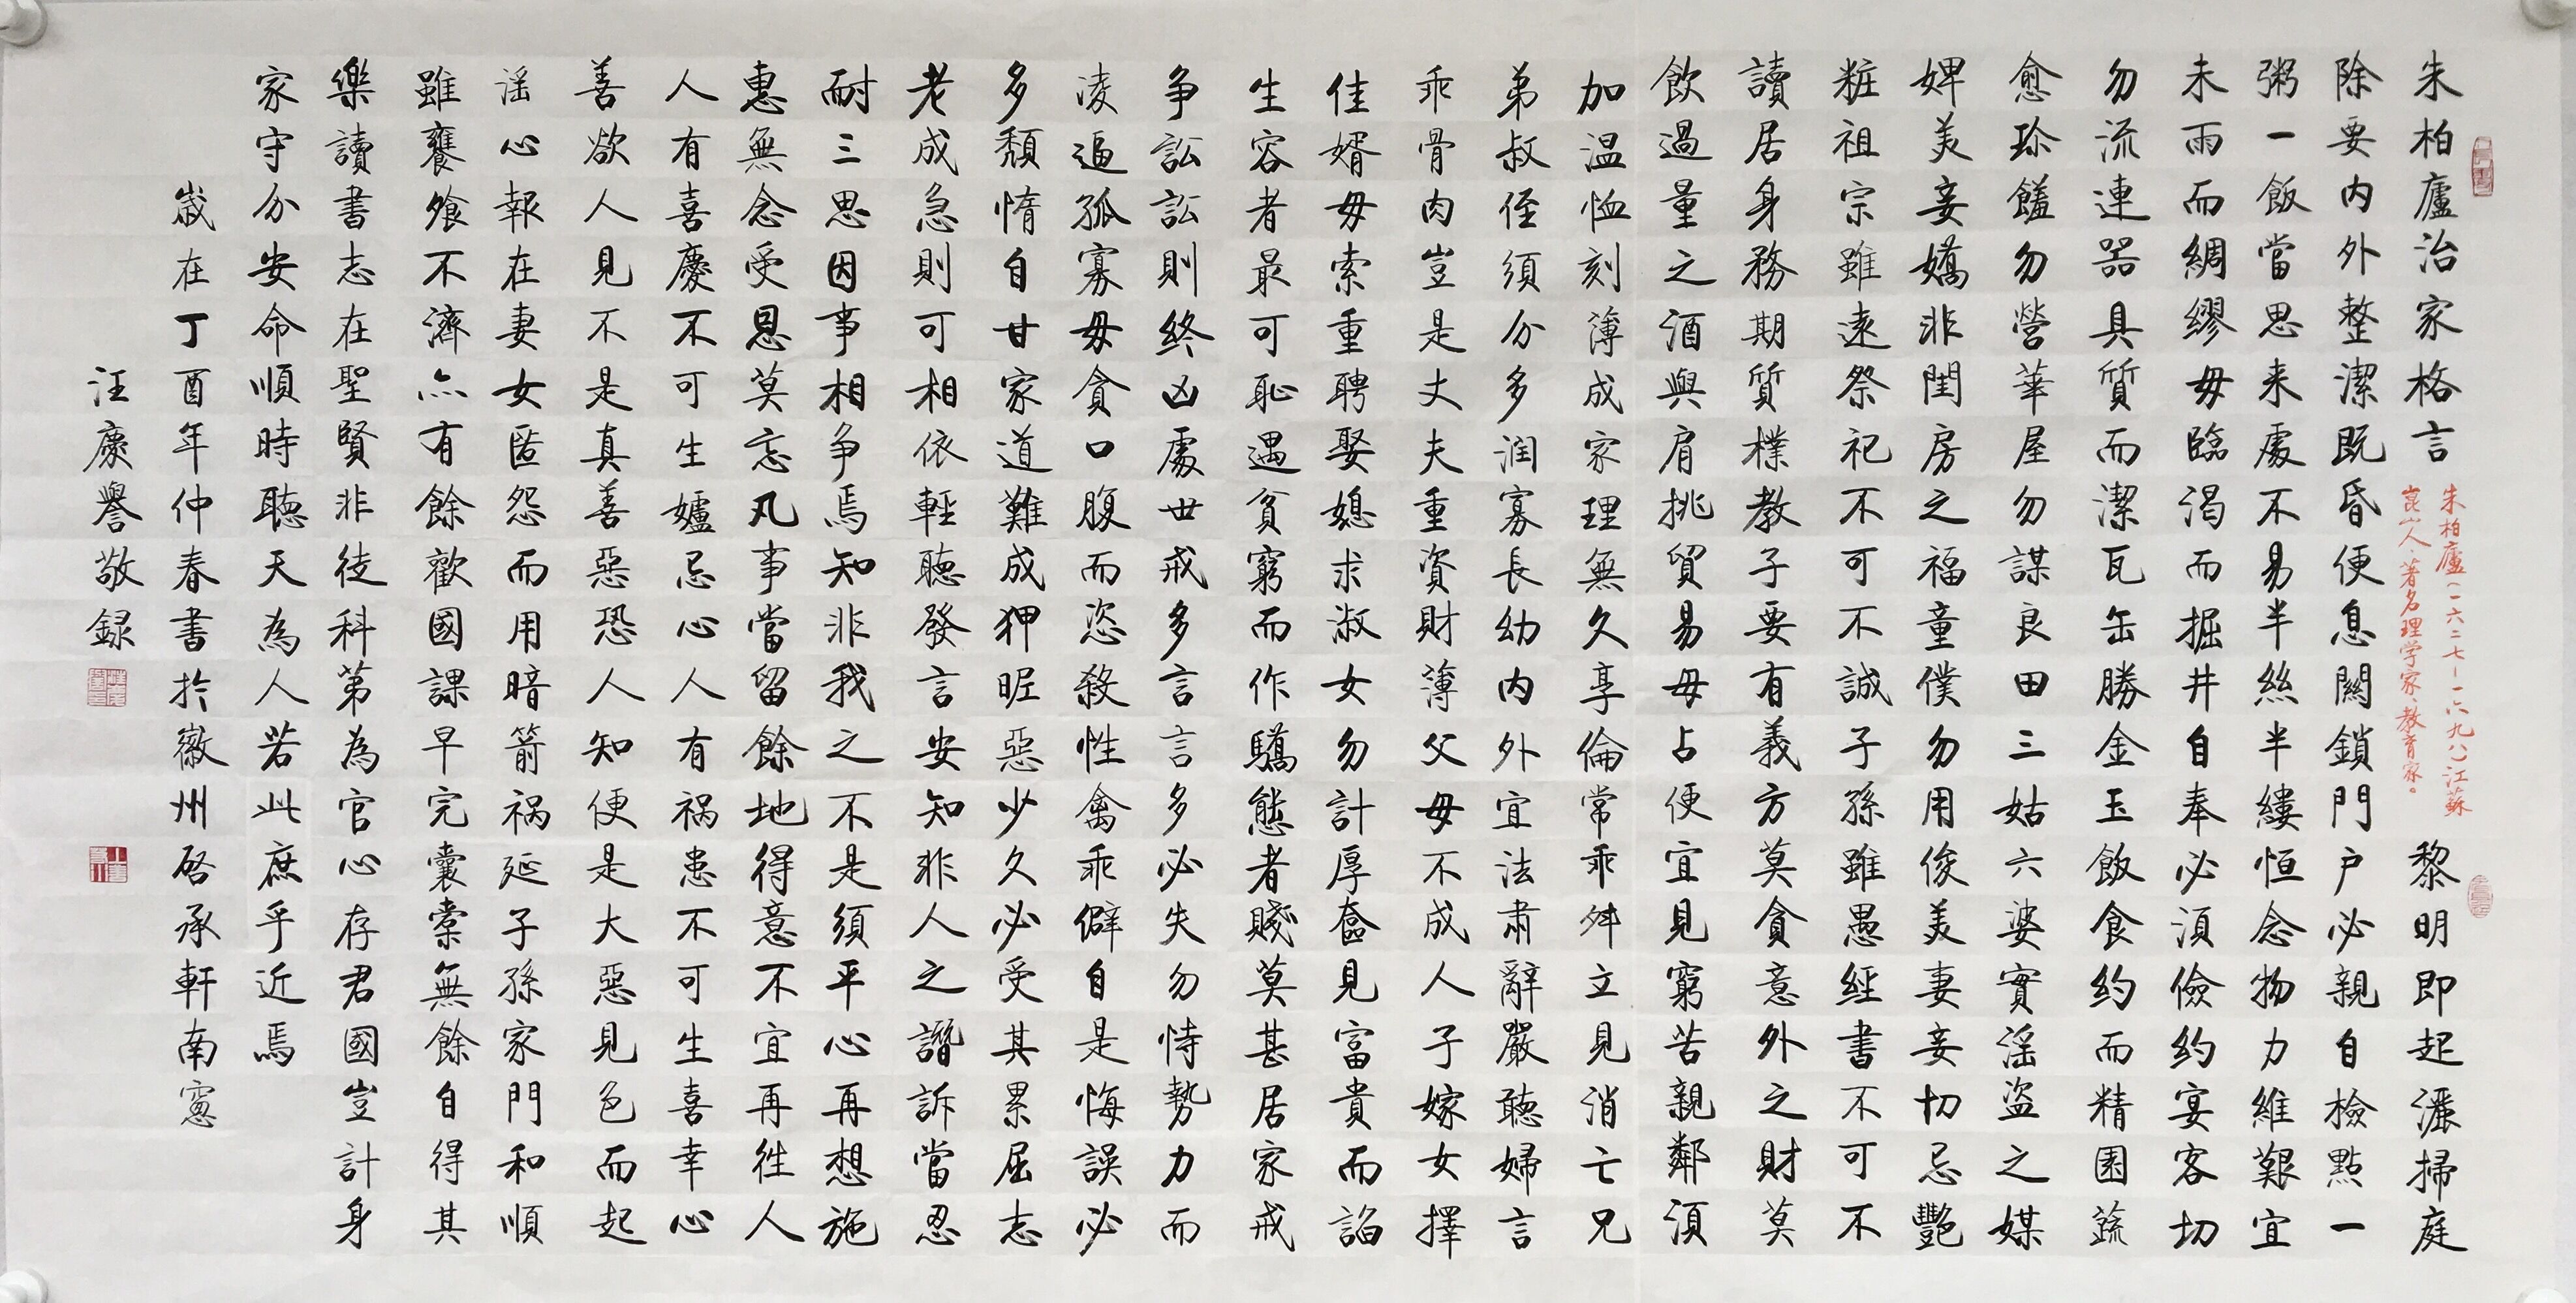 朱柏廬治家格言
朱柏廬(一六二七-一六九八)江蘇
崑山人、著名理学家、教育家。
黎明即起灑掃庭
除要内外整潔既昏便息闗鎖門户必親自檢點一
粥一飯當思来處不易半絲半縷恒念物力維艱宜
未雨而綢繆毋臨渴而掘井自奉必湏儉约宴客切
勿流連器具質而潔瓦缶勝金玉飯食约而精園蔬
愈珍饈勿營華屋勿謀良田三姑六婆實滛盗之媒
婢美妾嬌非閨房之福童僕勿用俊美妻妾切忌艷
粧祖宗雖遠祭祀不可不誠子孫雖愚經書不可不
讀居身務期質樸教子要有義方莫貪意外之財莫
飲過量之酒與肩挑貿易毋占便宜見窮苦親鄰湏
加温恤刻薄成家理無久享倫常乖舛立見消亡兄
弟叔侄須分多润寡長幼内外宜法肃辭嚴聽婦言
乖骨肉豈是丈夫重資財薄父母不成人子嫁女擇
佳婿毋索重聘娶媳求淑女勿計厚奩見富貴而諂
生容者最可恥遇貧窮而作驕態者賤莫甚居家戒
争訟訟則終凶處世戒多言言多必失勿恃勢力而
凌逼孤寡毋貪口腹而恣殺牲禽乖僻自是悔誤必
多頽惰自甘家道難成狎昵惡少久必受其累屈志
老成急則可相依輕聽發言安知非人之譖訴當忍
耐三思因事相争焉知非我之不是須平心再想施
惠無念受恩莫忘凡事當留餘地得意不宜再徃人
人有喜慶不可生妒忌心人有祸患不可生喜幸心
善欲人見不是真善惡恐人知便是大惡見色而起
滛心報在妻女匿怨而用暗箭祸延子孫家門和順
雖饔飧不濟亦有餘歡國課早完囊橐無餘自得其
樂讀書志在聖賢非徒科第為官心存君國豈計身
家守分安命順時聽天為人若此庶乎近焉
歲在丁酉年仲春書於徽州啓承軒南窻
汪康譽敬録